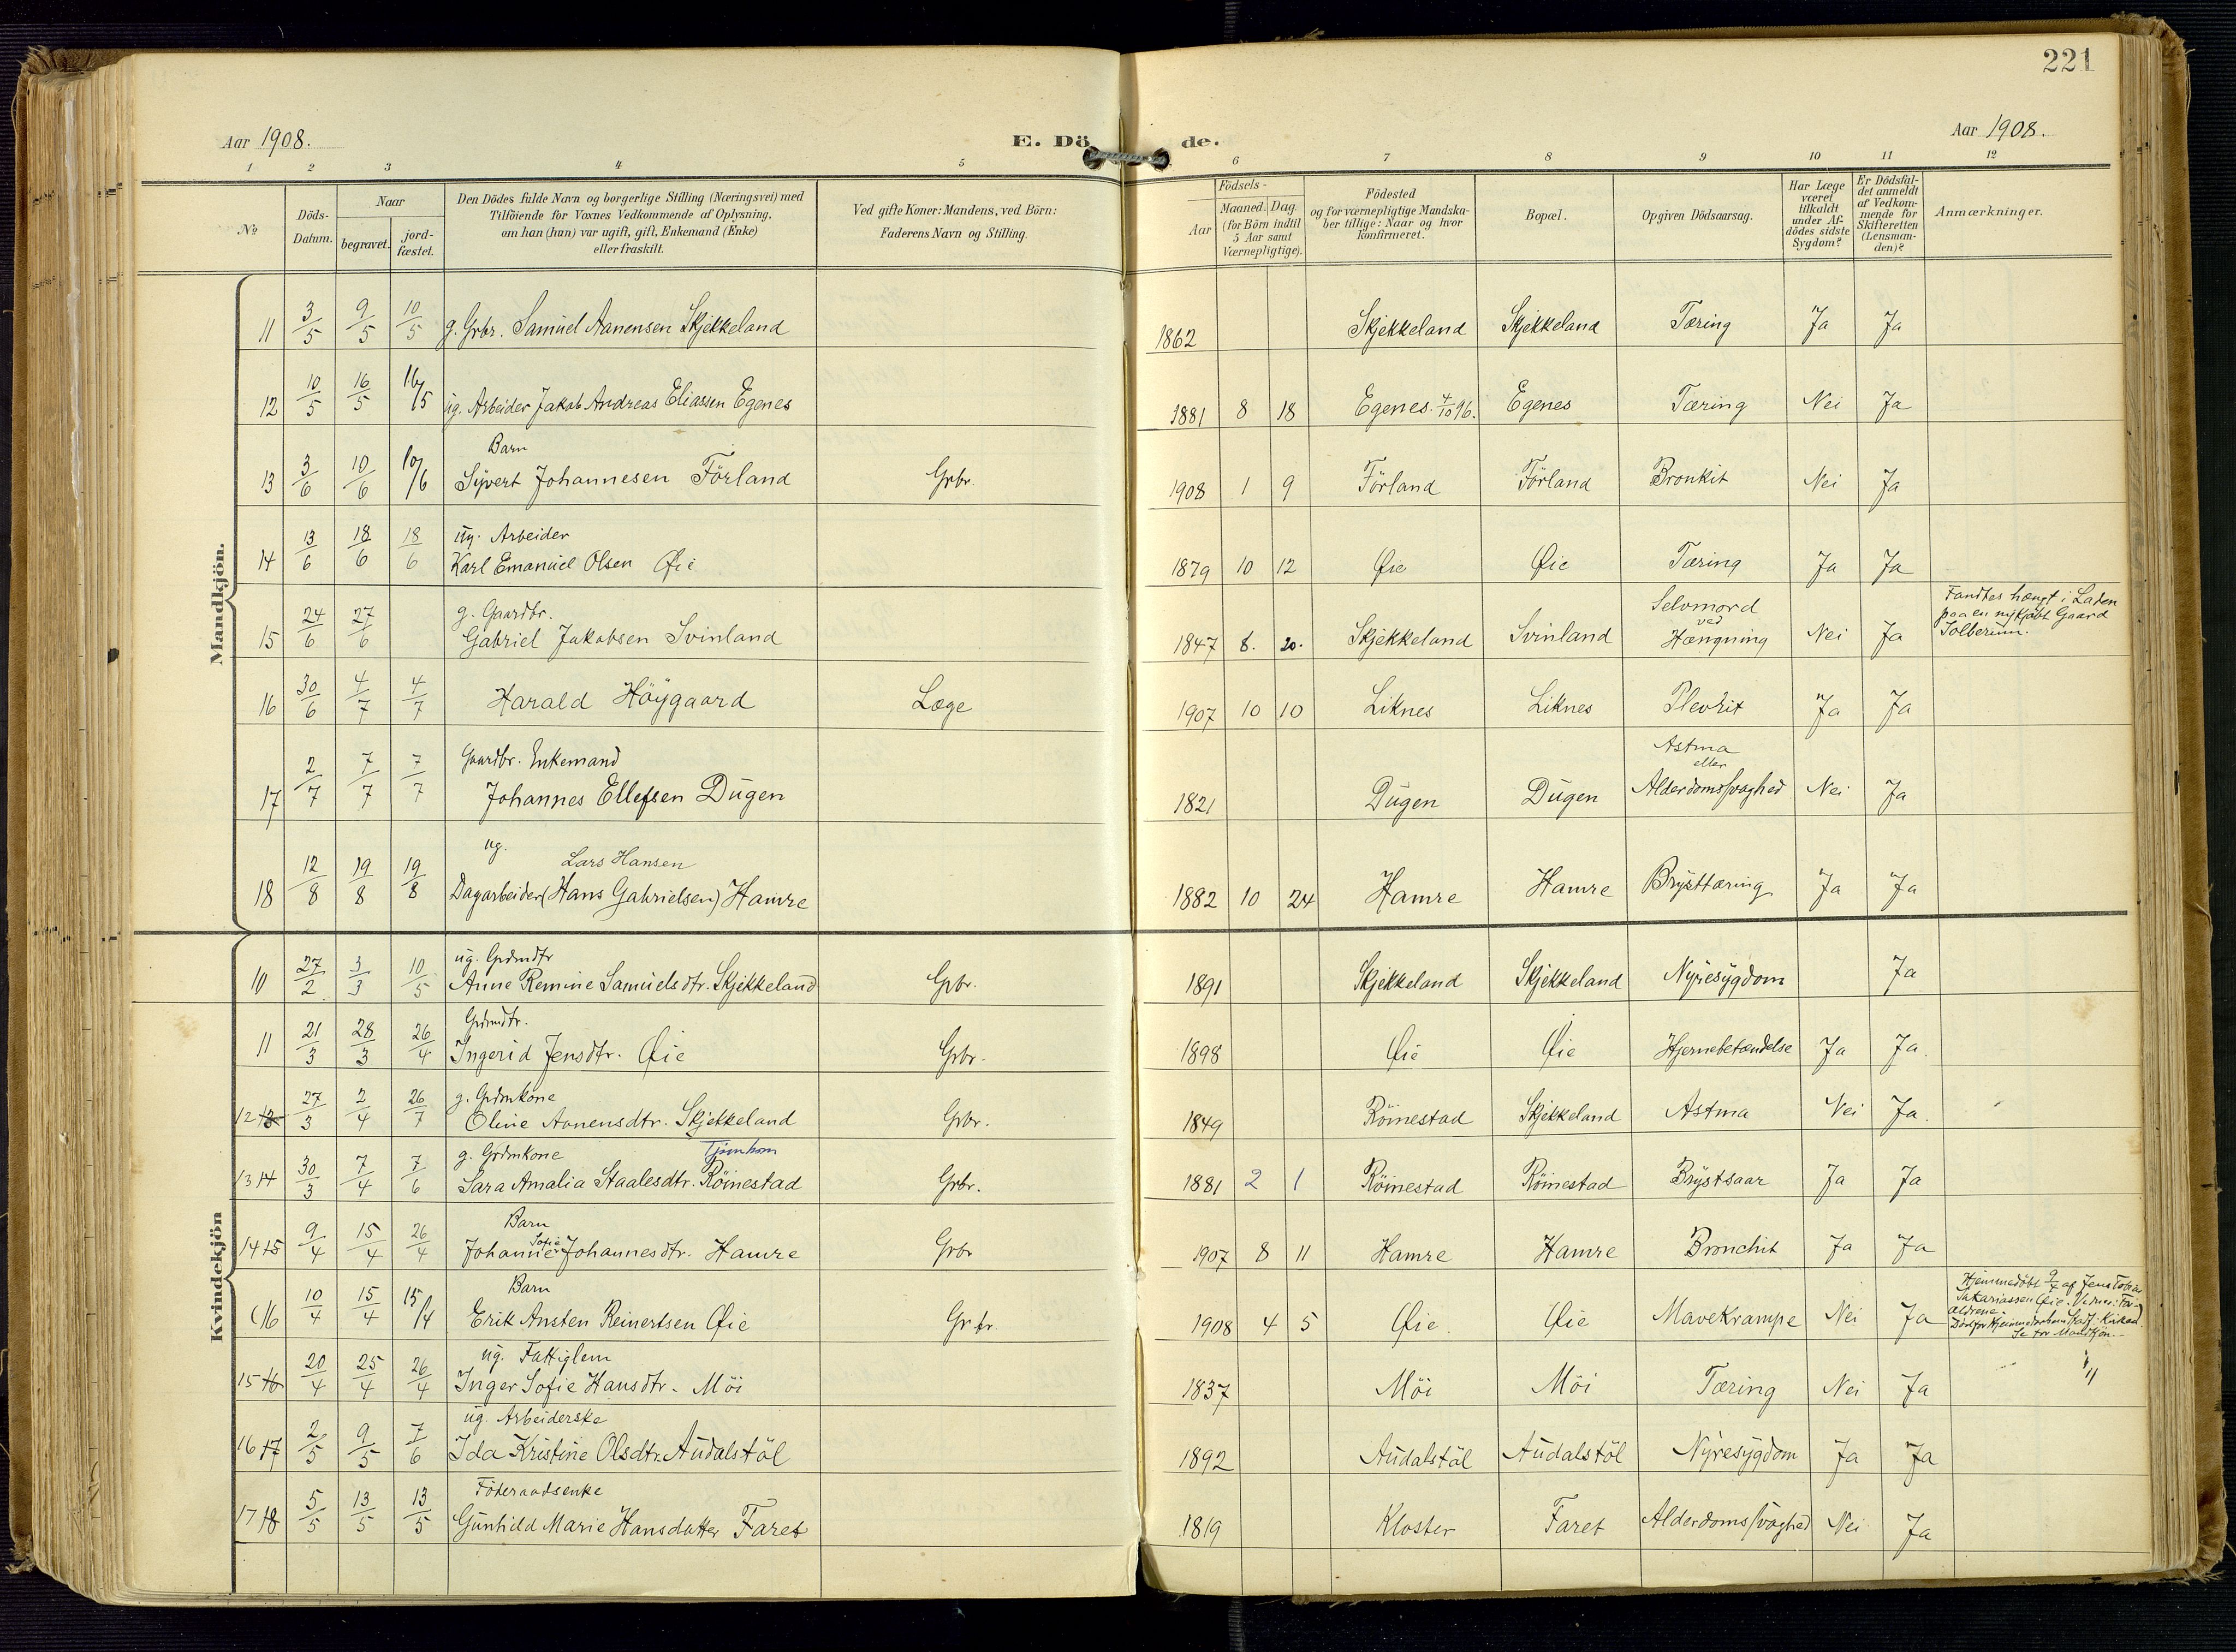 221
Aar 1908.
E. Dö de.
Aar 1908.
1 2 3 4 5 6 7 8 9 10 11 12
No
Döds-Datum.
Naar
begravet.
jord-fæstet.
Den Dödes fulde Navn og borgerlige Stilling (Næringsvei) med
Tilföiende for Voxnes Vedkommende af Oplysning,
om han (hun) var ugift, gift, Enkemand (Enke)
eller fraskilt.
Ved gifte Koner: Mandens, ved Börn:
Faderens Navn og Stilling.
Födsels-
Aar
Maaned. Dag.
(for Börn indtil
5 Aar samt
Værnepligtige).
Födested
og for værnepligtige Mandska-
ber tillige: Naar og hvor
konfirmeret.
Bopæl.
Opgiven Dödsaarsag.
Har Læge
været
tilkaldt
under Af-
dödes sidste
Sygdom?
Er Dödsfal-
det anmeldt
af Vedkom-
mende for
Skifteretten
(Lensman-
den)?
Anmærkninger.
Mandkjön.
11 3/5 9/5 10/5 g. Grbr. Samuel Aanensen Skjekkeland 1862 Skjekkeland Skjekkeland Tæring Ja Ja
12 10/5 16/5 16/5 ug. Arbeider Jakob Andreas Eliassen Egenes 1881 8 18 Egenes. 4/10 96. Egenes Tæring Nei Ja
Barn
13 3/6 10/6 10/6 Syvert Johannesen Förland Grbr. 1908 1 9 Förland Förland Bronkit Nei Ja
ug. Arbeider
14 13/6 18/6 18/6 Karl Emanuel Olsen Øie 1879 10 12 Øie Øie Tæring Ja Ja
g. Gaardbr.
15 24/6 27/6 Gabriel Jakobsen Svinland 1847 8. 20. Skjekkeland Svinland Selvmord ved Hængning Nei Ja
Fandtes hængt i Laden
paa en nykjøbt Gaard
Solberum.
16 30/6 4/7 4/7 Harald Höygaard Læge 1907 10 10 Liknes Liknes Plevrit Ja Ja
Gaardbr. Enkemand
17 2/7 7/7 7/7 Johannes Ellefsen Dugen 1821 Dugen Dugen Astma eller Alderdomssvaghed Nei Ja
ug. Lars Hansen
18 12/8 19/8 19/8 Dagarbeider (Hans Gabrielsen) Hamre 1882 10 24 Hamre Hamre Brysttæring Ja Ja
Kvindekjön
ug. Grdmdtr
10 27/2 3/3 10/5 Anne Remine Samuelsdtr. Skjekkeland Grbr. 1891 Skjekkeland Skjekkeland Nyresygdom Ja
Grdmdtr.
11 21/3 28/3 26/4 Ingerid Jensdtr. Øie Grbr. 1898 Øie Øie Hjernebetændelse Ja Ja.
g. Grdmkone
12 13 27/3 2/4 26/7 Oline Aanensdtr. Skjekkeland Grbr. 1849 Röinestad Skjekkeland Astma Nei Ja.
g. Grdmkone Tjomhom
13 14 30/3 7/4 7/6 Sara Amalia Staalesdtr. Röinestad Grbr. 1881 2 1 Röinestad Röinestad Brystsaar Ja Ja
Barn
14 15 9/4 15/4 26/4 Johanne Sofie Johannesdtr. Hamre Grbr 1907 8 11 Hamre Hamre Bronchit Ja Ja
Barn
(16 10/4 15/4 15/4 Erik Ansten Reinertsen Øie Grbr. 1908 4 5 Øie Øie Mavekrampe Nei Ja
Hjemmedöbt 9/4 af Jens Tobias
Sakariassen Øie.
Se for Mandkjön.
ug. Fattiglem
15 16 20/4 25/4 26/4 Inger Sofie Hansdtr. Möi 1837 Möi Möi Tæring Nei Ja
ug. Arbeiderske
16 17 2/5 9/5 7/6 Ida Kristine Olsdtr. Audalstöl 1892 Audalstöl Audalstöl Nyresygdom Ja Ja
Föderaadsenke
17 18 5/5 13/5 13/5 Gunhild Marie Hansdatter Faret 1819 Kloster Faret Alderdomssvaghed Nei Ja